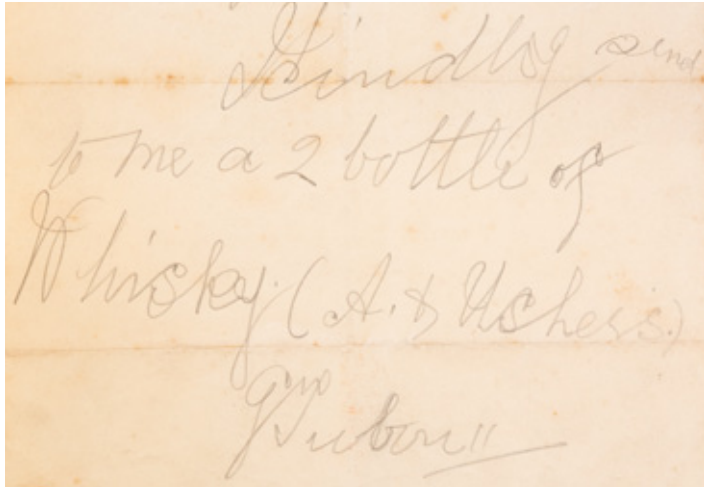 Kindly send
to me a 2 bottle of
Whisky. (A. & Ushers.)